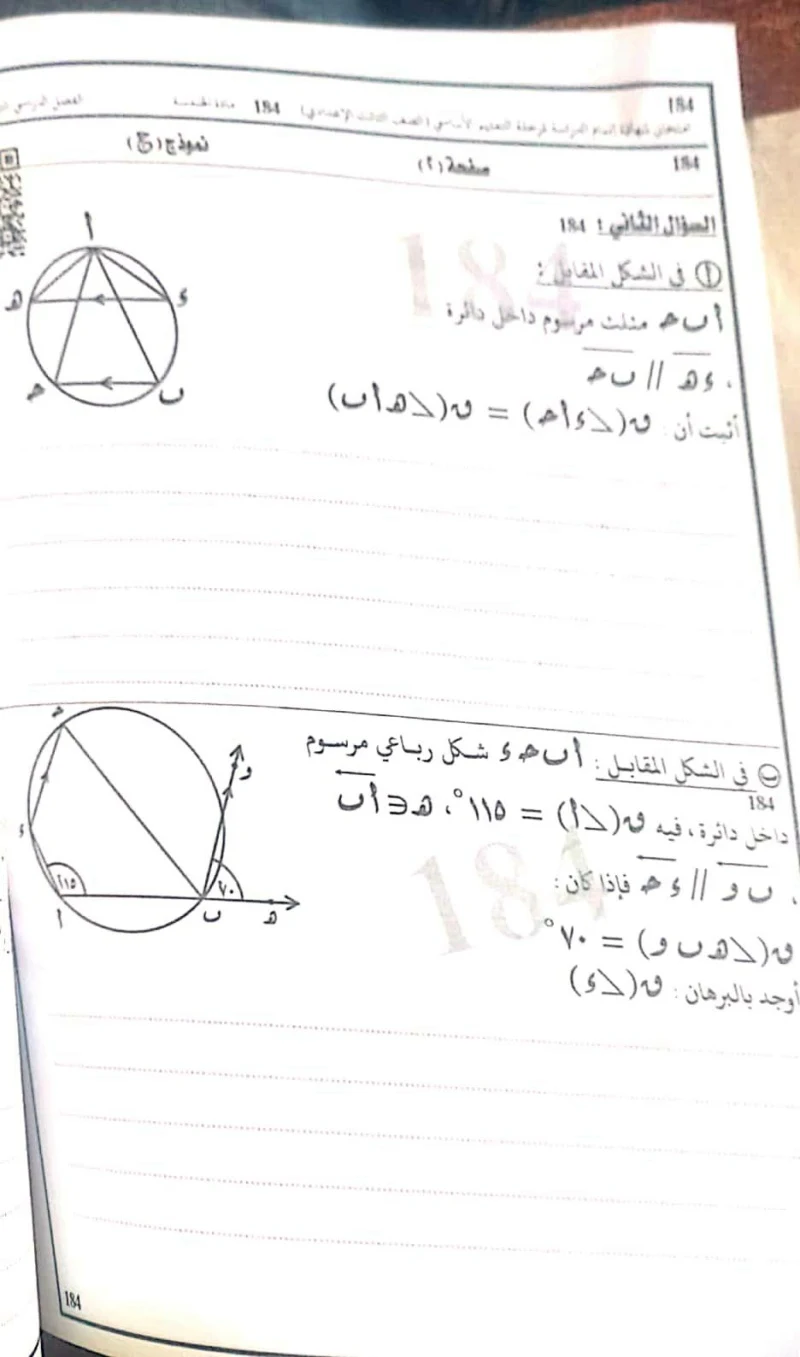 184
امتحان شهادة إتمام الدراسة لمرحلة التعليم الأساسي (الصف الثالث الإعدادي) 184 مادة الهندسة الفصل الدراسي
184 صفحة (٢) نموذج (ج)
السؤال الثاني : 184
184
أ في الشكل المقابل :
أ ب حـ مثلث مرسوم داخل دائرة
، ء هـ // ب حـ
أثبت أن : ق(ﮮ ء أ حـ) = ق(ﮮ هـ أ ب)
أ
ء
هـ
حـ
ب
ب في الشكل المقابل : أ ب حـ ء شكل رباعي مرسوم
184
داخل دائرة ، فيه ق(ﮮ أ) = ١١٥° ، هـ ∈ أ ب
، ب و // ء حـ فإذا كان :
184
ق(ﮮ هـ ب و) = ٧٠°
أوجد بالبرهان : ق(ﮮ ء)
حـ
و
ء
١١٥
٧٠
أ
ب
هـ
184